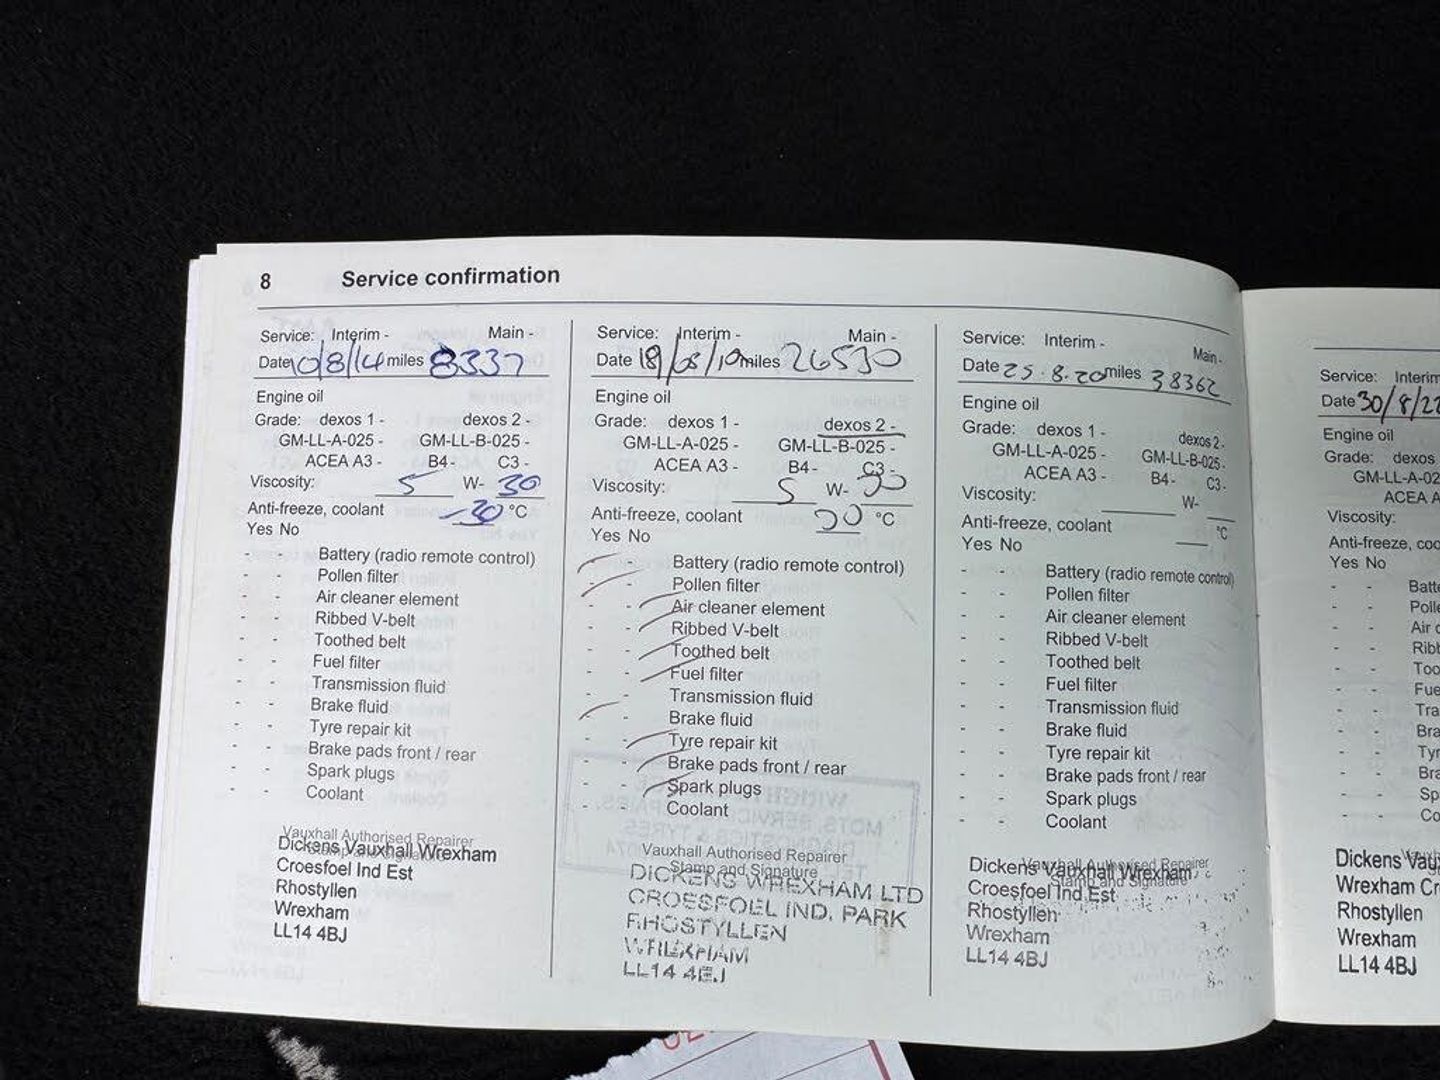 8 Service confirmation
Service: Interim - Main -
Date 10/8/14 miles 8337
Engine oil
Grade: dexos 1 - dexos 2 -
GM-LL-A-025 - GM-LL-B-025 -
ACEA A3 - B4 - C3 -
Viscosity: 5 W- 30
Anti-freeze, coolant -30 °C
Yes No
- - Battery (radio remote control)
- - Pollen filter
- - Air cleaner element
- - Ribbed V-belt
- - Toothed belt
- - Fuel filter
- - Transmission fluid
- - Brake fluid
- - Tyre repair kit
- - Brake pads front / rear
- - Spark plugs
- - Coolant
Vauxhall Authorised Repairer
Stamp and Signature
Dickens Vauxhall Wrexham
Croesfoel Ind Est
Rhostyllen
Wrexham
LL14 4BJ
Service: Interim - Main -
Date miles 26530
Engine oil
Grade: dexos 1 - dexos 2 -
GM-LL-A-025 - GM-LL-B-025 -
ACEA A3 - B4 - C3 -
Viscosity: 5 W- 30
Anti-freeze, coolant °C
Yes No
- - Battery (radio remote control)
- - Pollen filter
- - Air cleaner element
- - Ribbed V-belt
- - Toothed belt
- - Fuel filter
- - Transmission fluid
- - Brake fluid
- - Tyre repair kit
- - Brake pads front / rear
- - Spark plugs
- - Coolant
Vauxhall Authorised Repairer
Stamp and Signature
DICKENS WREXHAM LTD
CROESFOEL IND. PARK
RHOSTYLLEN
WREXHAM
LL14 4EJ
Service: Interim - Main -
Date 25.8.20 miles 38362
Engine oil
Grade: dexos 1 - dexos 2 -
GM-LL-A-025 - GM-LL-B-025 -
ACEA A3 - B4 - C3 -
Viscosity: W-
Anti-freeze, coolant °C
Yes No
- - Battery (radio remote control)
- - Pollen filter
- - Air cleaner element
- - Ribbed V-belt
- - Toothed belt
- - Fuel filter
- - Transmission fluid
- - Brake fluid
- - Tyre repair kit
- - Brake pads front / rear
- - Spark plugs
- - Coolant
Vauxhall Authorised Repairer
Stamp and Signature
Dickens Vauxhall Wrexham
Croesfoel Ind Est
Rhostyllen
Wrexham
LL14 4BJ
Service: Interim
Date 30/8/22
Engine oil
Grade: dexos
GM-LL-A-02
ACEA A
Viscosity:
Anti-freeze, coo
Yes No
- - Batte
- - Polle
- - Air c
- - Ribb
- - Too
- - Fue
- - Tra
- - Bra
- - Tyr
- - Bra
- - Sp
- - Co
Dickens Vau
Wrexham Cr
Rhostyllen
Wrexham
LL14 4BJ